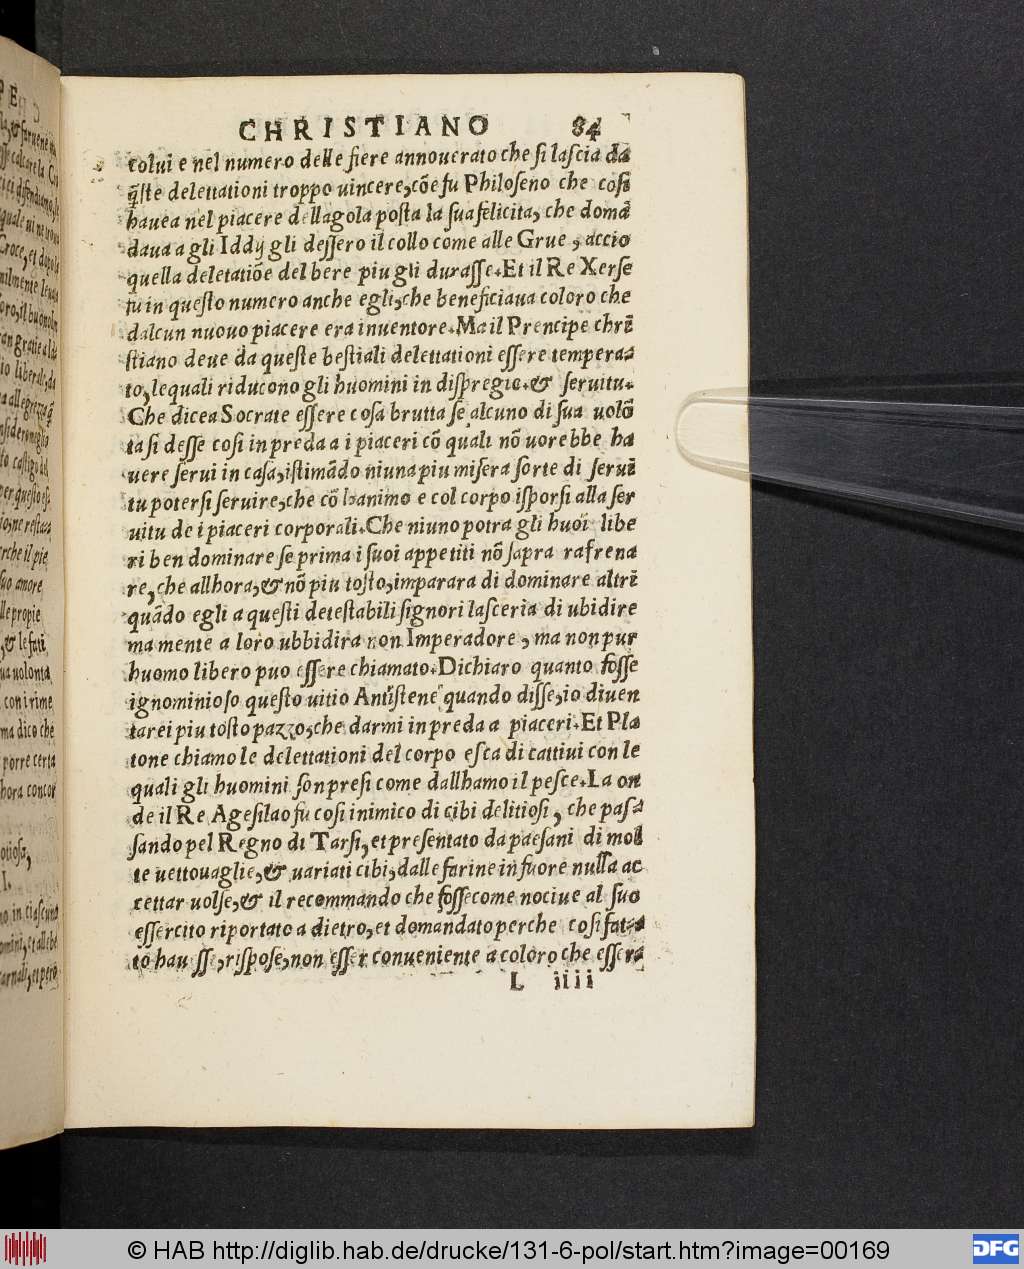 CHRISTIANO 84
colui e nel numero delle fiere annouerato che si lascia da
q̃ste delettationi troppo uincere, cõe fu Philoseno che cosi
hauea nel piacere dellagola posta la sua felicita, che domã
daua a gli Iddij gli dessero il collo come alle Grue, accio
quella deletatiõe del bere piu gli durasse. Et il Re Xerse
fu in questo numero anche egli, che beneficiaua coloro che
dalcun nuouo piacere era inuentore. Ma il Prencipe chrĩ
stiano deue da queste bestiali delettationi essere tempera-
to, lequali riducono gli huomini in dispregio. & seruitu.
Che dicea Socrate essere cosa brutta se alcuno di sua uolõ
ta si desse cosi in preda a i piaceri cõ quali nõ uorebbe ha
uere serui in casa, istimãdo niuna piu misera sorte di seruĩ
tu potersi seruire, che cõ lanimo e col corpo isporsi alla ser
uitu de i piaceri corporali. Che niuno potra gli huoĩ libe
ri ben dominare se prima i suoi appetiti nõ sapra rafrena
re, che allhora, & nõ piu tosto, imparara di dominare altrĩ
quãdo egli a questi detestabili signori lasceria di ubidire
ma mente a loro ubbidira non Imperadore, ma non pur
huomo libero puo essere chiamato. Dichiaro quanto fosse
ignominioso questo uitio Antistene quando disse, io diuen
tarei piu tosto pazzo, che darmi in preda a piaceri. Et Pla
tone chiamo le delettationi del corpo esca di cattiui con le
quali gli huomini son presi come dallhamo il pesce. La on
de il Re Agesilao fu cosi inimico di cibi delitiosi, che pas-
sando pel Regno di Tarsi, et presentato da paesani di mol
te uettouaglie, & uariati cibi, dalle farine in fuore nulla ac
cettar uolse, & il recommando che fosse come nociue al suo
essercito riportato a dietro, et domandato perche cosi fat-
to hau sse, rispose, non esser conueniente a coloro che essera
L iiii
© HAB http://diglib.hab.de/drucke/131-6-pol/start.htm?image=00169
DFG